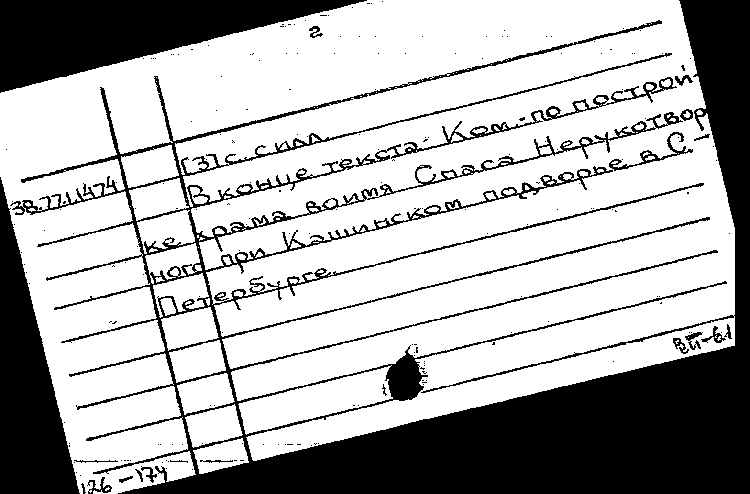 2
[3] с. с илл.
38.77.1.1474 В конце текста: Ком.-по построй-
ке храма во имя Спаса Нерукотвор-
ного при Кашинском подворье в С.-
Петербурге.
126-174